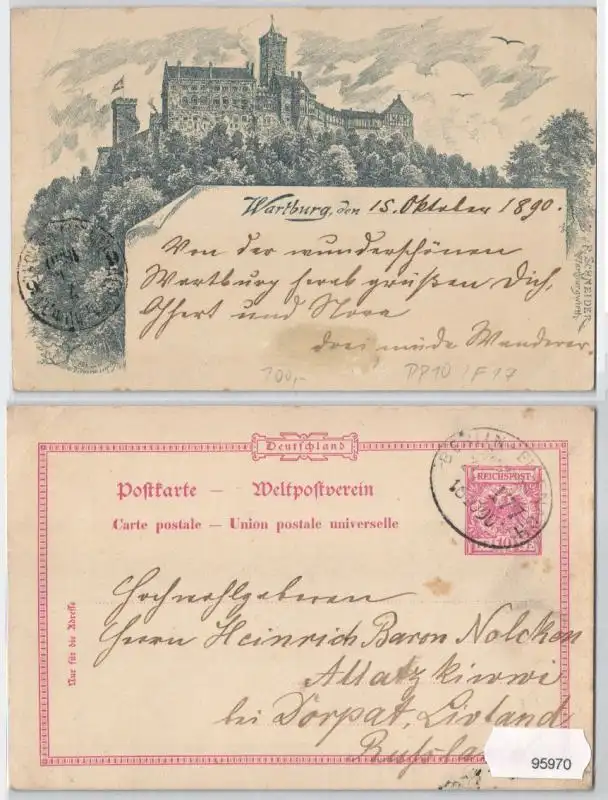 Wartburg, den 15. Oktober 1890.
Von der wunderschönen
Wartburg herab grüßen Dich,
und Nora
drei müde Wanderer.
P. SCHNEIDER
100,-
DP10 / F 17
Deutschland
Postkarte — Weltpostverein
Carte postale — Union postale universelle
REICHSPOST
10
Nur für die Adresse
Hochwohlgeboren
Herrn Heinrich Baron Nolcken
Allatzkiwwi
bei Dorpat, Livland,
95970